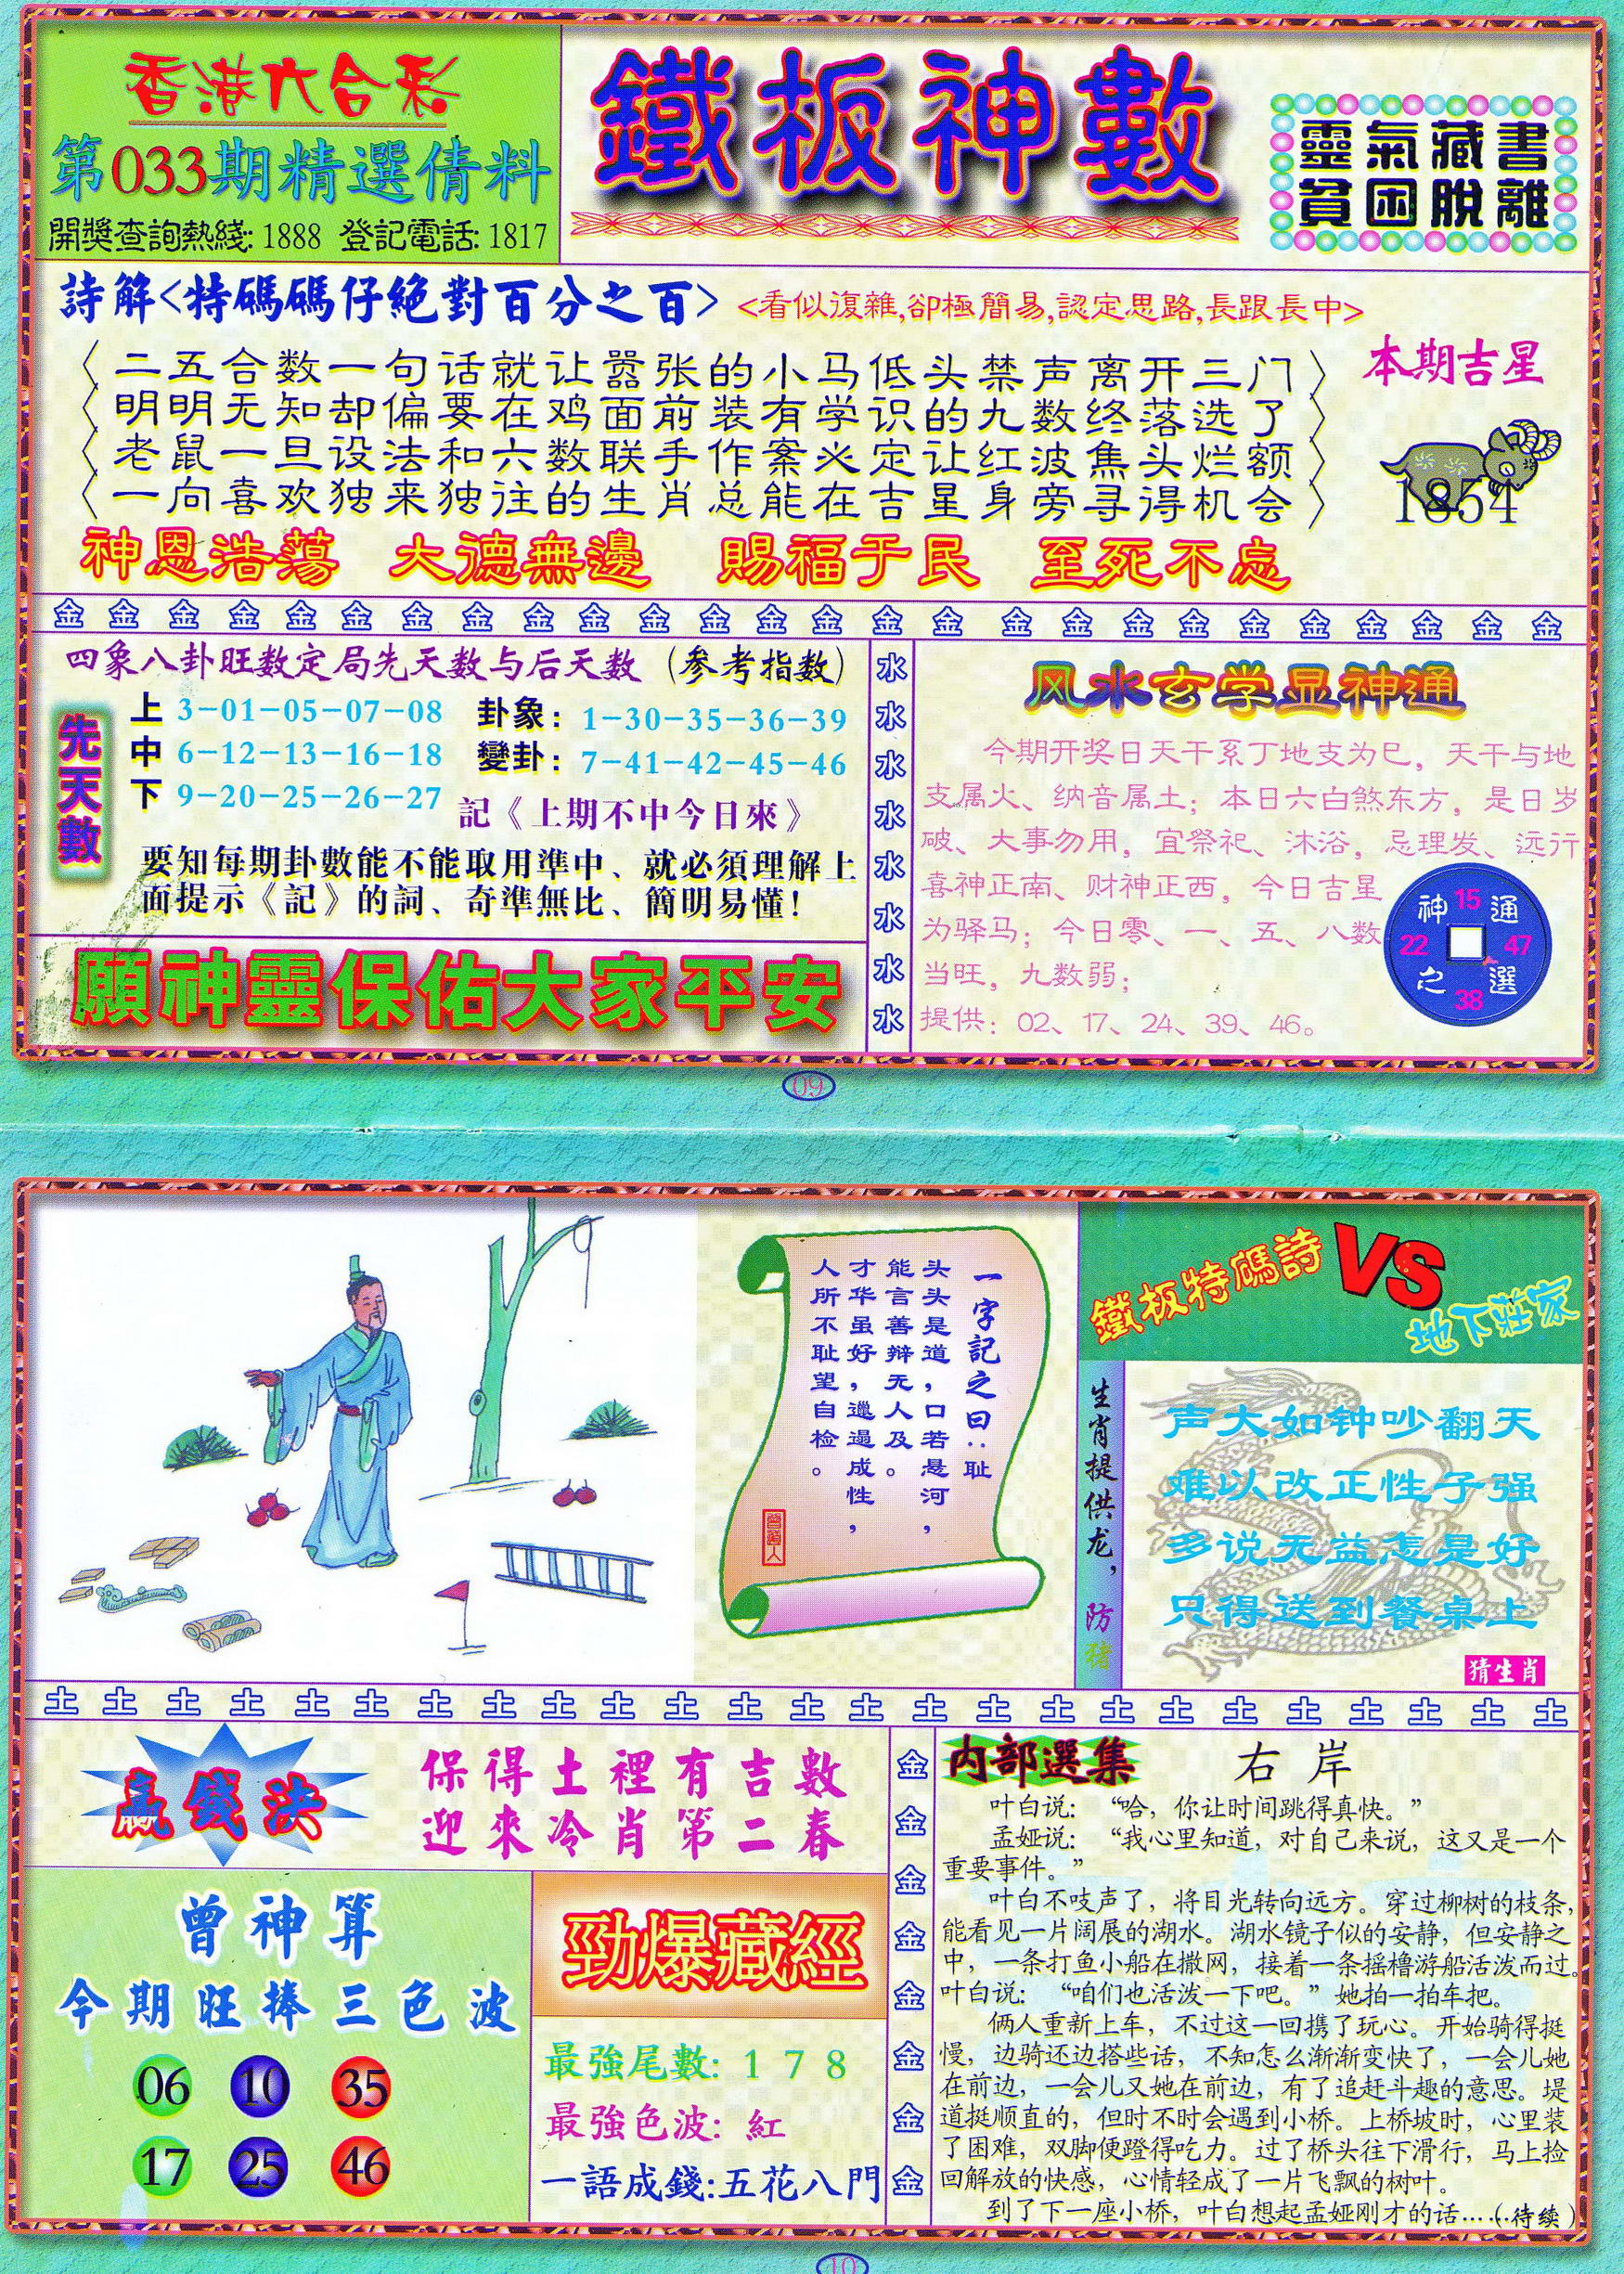 香港六合彩
第033期精選倩料
開獎查詢熱綫: 1888 登記電話: 1817
鐵板神數
靈氣藏書
貧困脫離
詩解<特碼碼仔絕對百分之百>
<看似復雜,卻極簡易,認定思路,長跟長中>
二五合数一句话就让嚣张的小马低头禁声离开三门
明明无知却偏要在鸡面前装有学识的九数终落选了
老鼠一旦设法和六数联手作案必定让红波焦头烂额
一向喜欢独来独往的生肖总能在吉星身旁寻得机会
本期吉星
1854
神恩浩蕩 大德無邊 賜福于民 至死不忘
金 金 金 金 金 金 金 金 金 金 金 金 金 金 金 金 金 金 金 金 金 金 金 金 金 金
四象八卦旺数定局先天数与后天数 (参考指数)
先天數
上 3-01-05-07-08
中 6-12-13-16-18
下 9-20-25-26-27
卦象: 1-30-35-36-39
變卦: 7-41-42-45-46
記《上期不中今日來》
要知每期卦數能不能取用準中、就必須理解上
面提示《記》的詞、奇準無比、簡明易懂!
願神靈保佑大家平安
水
水
水
水
水
水
水
水
风水玄学显神通
今期开奖日天干系丁地支为巳，天干与地
支属火、纳音属土；本日六白煞东方，是日岁
破、大事勿用，宜祭祀、沐浴，忌理发、远行
喜神正南、财神正西，今日吉星
为驿马；今日零、一、五、八数
当旺，九数弱；
提供：02、17、24、39、46。
神 15 通
22 47
之 38 選
09
一字記之曰：耻
头头是道，口若悬河，
能言善辩无人及。
才华虽好，邋遢成性，
人所不耻望自检。
曾道人
鐵板特碼詩
VS
地下莊家
生肖提供龙，防猪
声大如钟吵翻天
难以改正性子强
多说无益怎是好
只得送到餐桌上
猜生肖
土 土 土 土 土 土 土 土 土 土 土 土 土 土 土 土 土 土 土 土 土 土 土 土 土
赢錢决
保得土裡有吉數
迎來冷肖第二春
曾神算
今期旺捧三色波
06 10 35
17 25 46
勁爆藏經
最強尾數: 1 7 8
最強色波: 紅
一語成錢:五花八門
金
金
金
金
金
金
金
金
内部選集
右岸
叶白说：“哈，你让时间跳得真快。”
孟娅说：“我心里知道，对自己来说，这又是一个
重要事件。”
叶白不吱声了，将目光转向远方。穿过柳树的枝条，
能看见一片阔展的湖水。湖水镜子似的安静，但安静之
中，一条打鱼小船在撒网，接着一条摇橹游船活泼而过。
叶白说：“咱们也活泼一下吧。”她拍一拍车把。
俩人重新上车，不过这一回携了玩心。开始骑得挺
慢，边骑还边搭些话，不知怎么渐渐变快了，一会儿她
在前边，一会儿又她在前边，有了追赶斗趣的意思。堤
道挺顺直的，但时不时会遇到小桥。上桥坡时，心里装
了困难，双脚便蹬得吃力。过了桥头往下滑行，马上捡
回解放的快感，心情轻成了一片飞飘的树叶。
到了下一座小桥，叶白想起孟娅刚才的话……(待续)
10